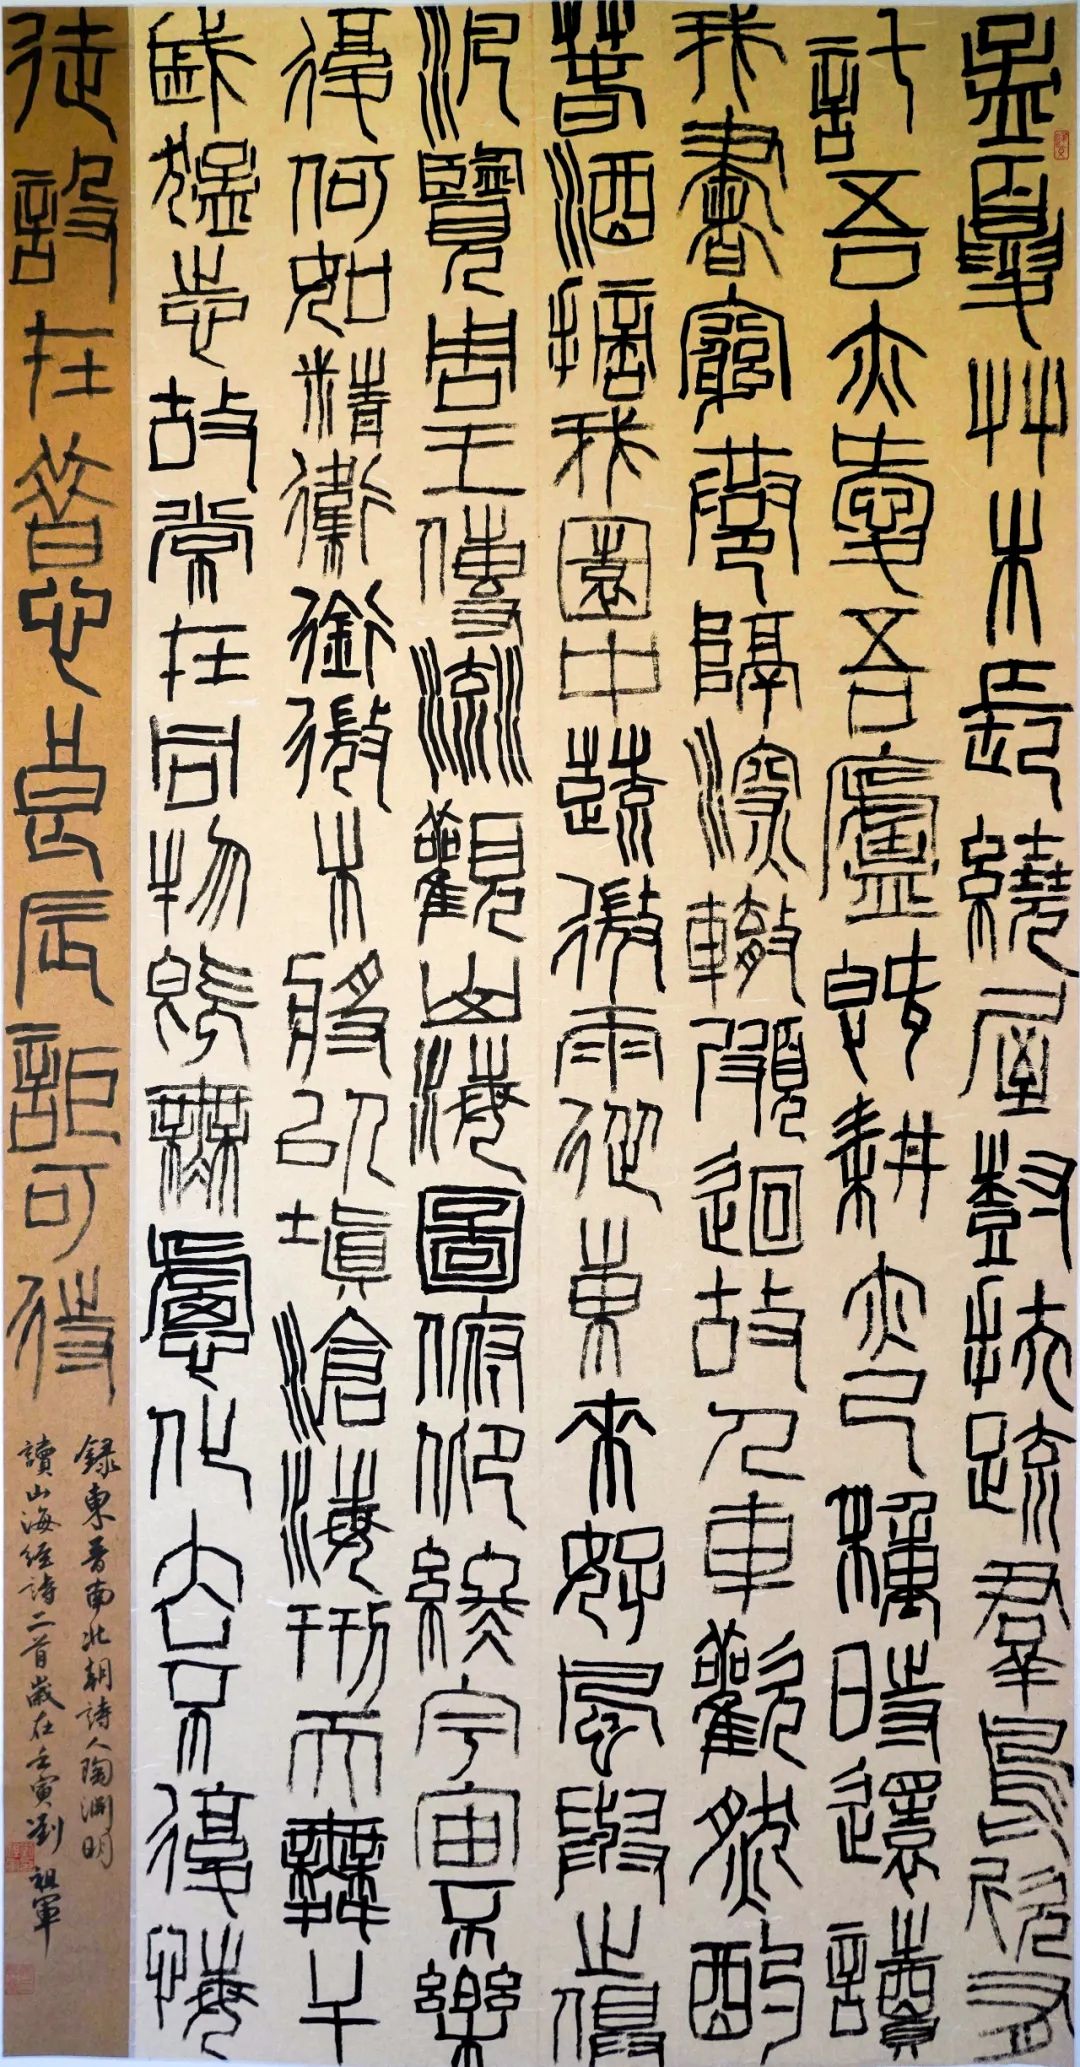 孟夏草木長繞屋樹扶疏羣鳥欣有
託吾亦愛吾廬既耕亦已種時還讀
我書窮巷隔深轍頗迴故人車歡然酌
春酒摘我園中蔬微雨從東來好風與之俱
汎覽周王傳流觀山海圖俯仰終宇宙不樂
復何如精衛銜微木將以填滄海刑天舞干
戚猛志故常在同物既無慮化去不復悔
徒設在昔心良辰詎可待
錄東晉南北朝詩人陶淵明
讀山海經詩二首歲在壬寅劉祖軍